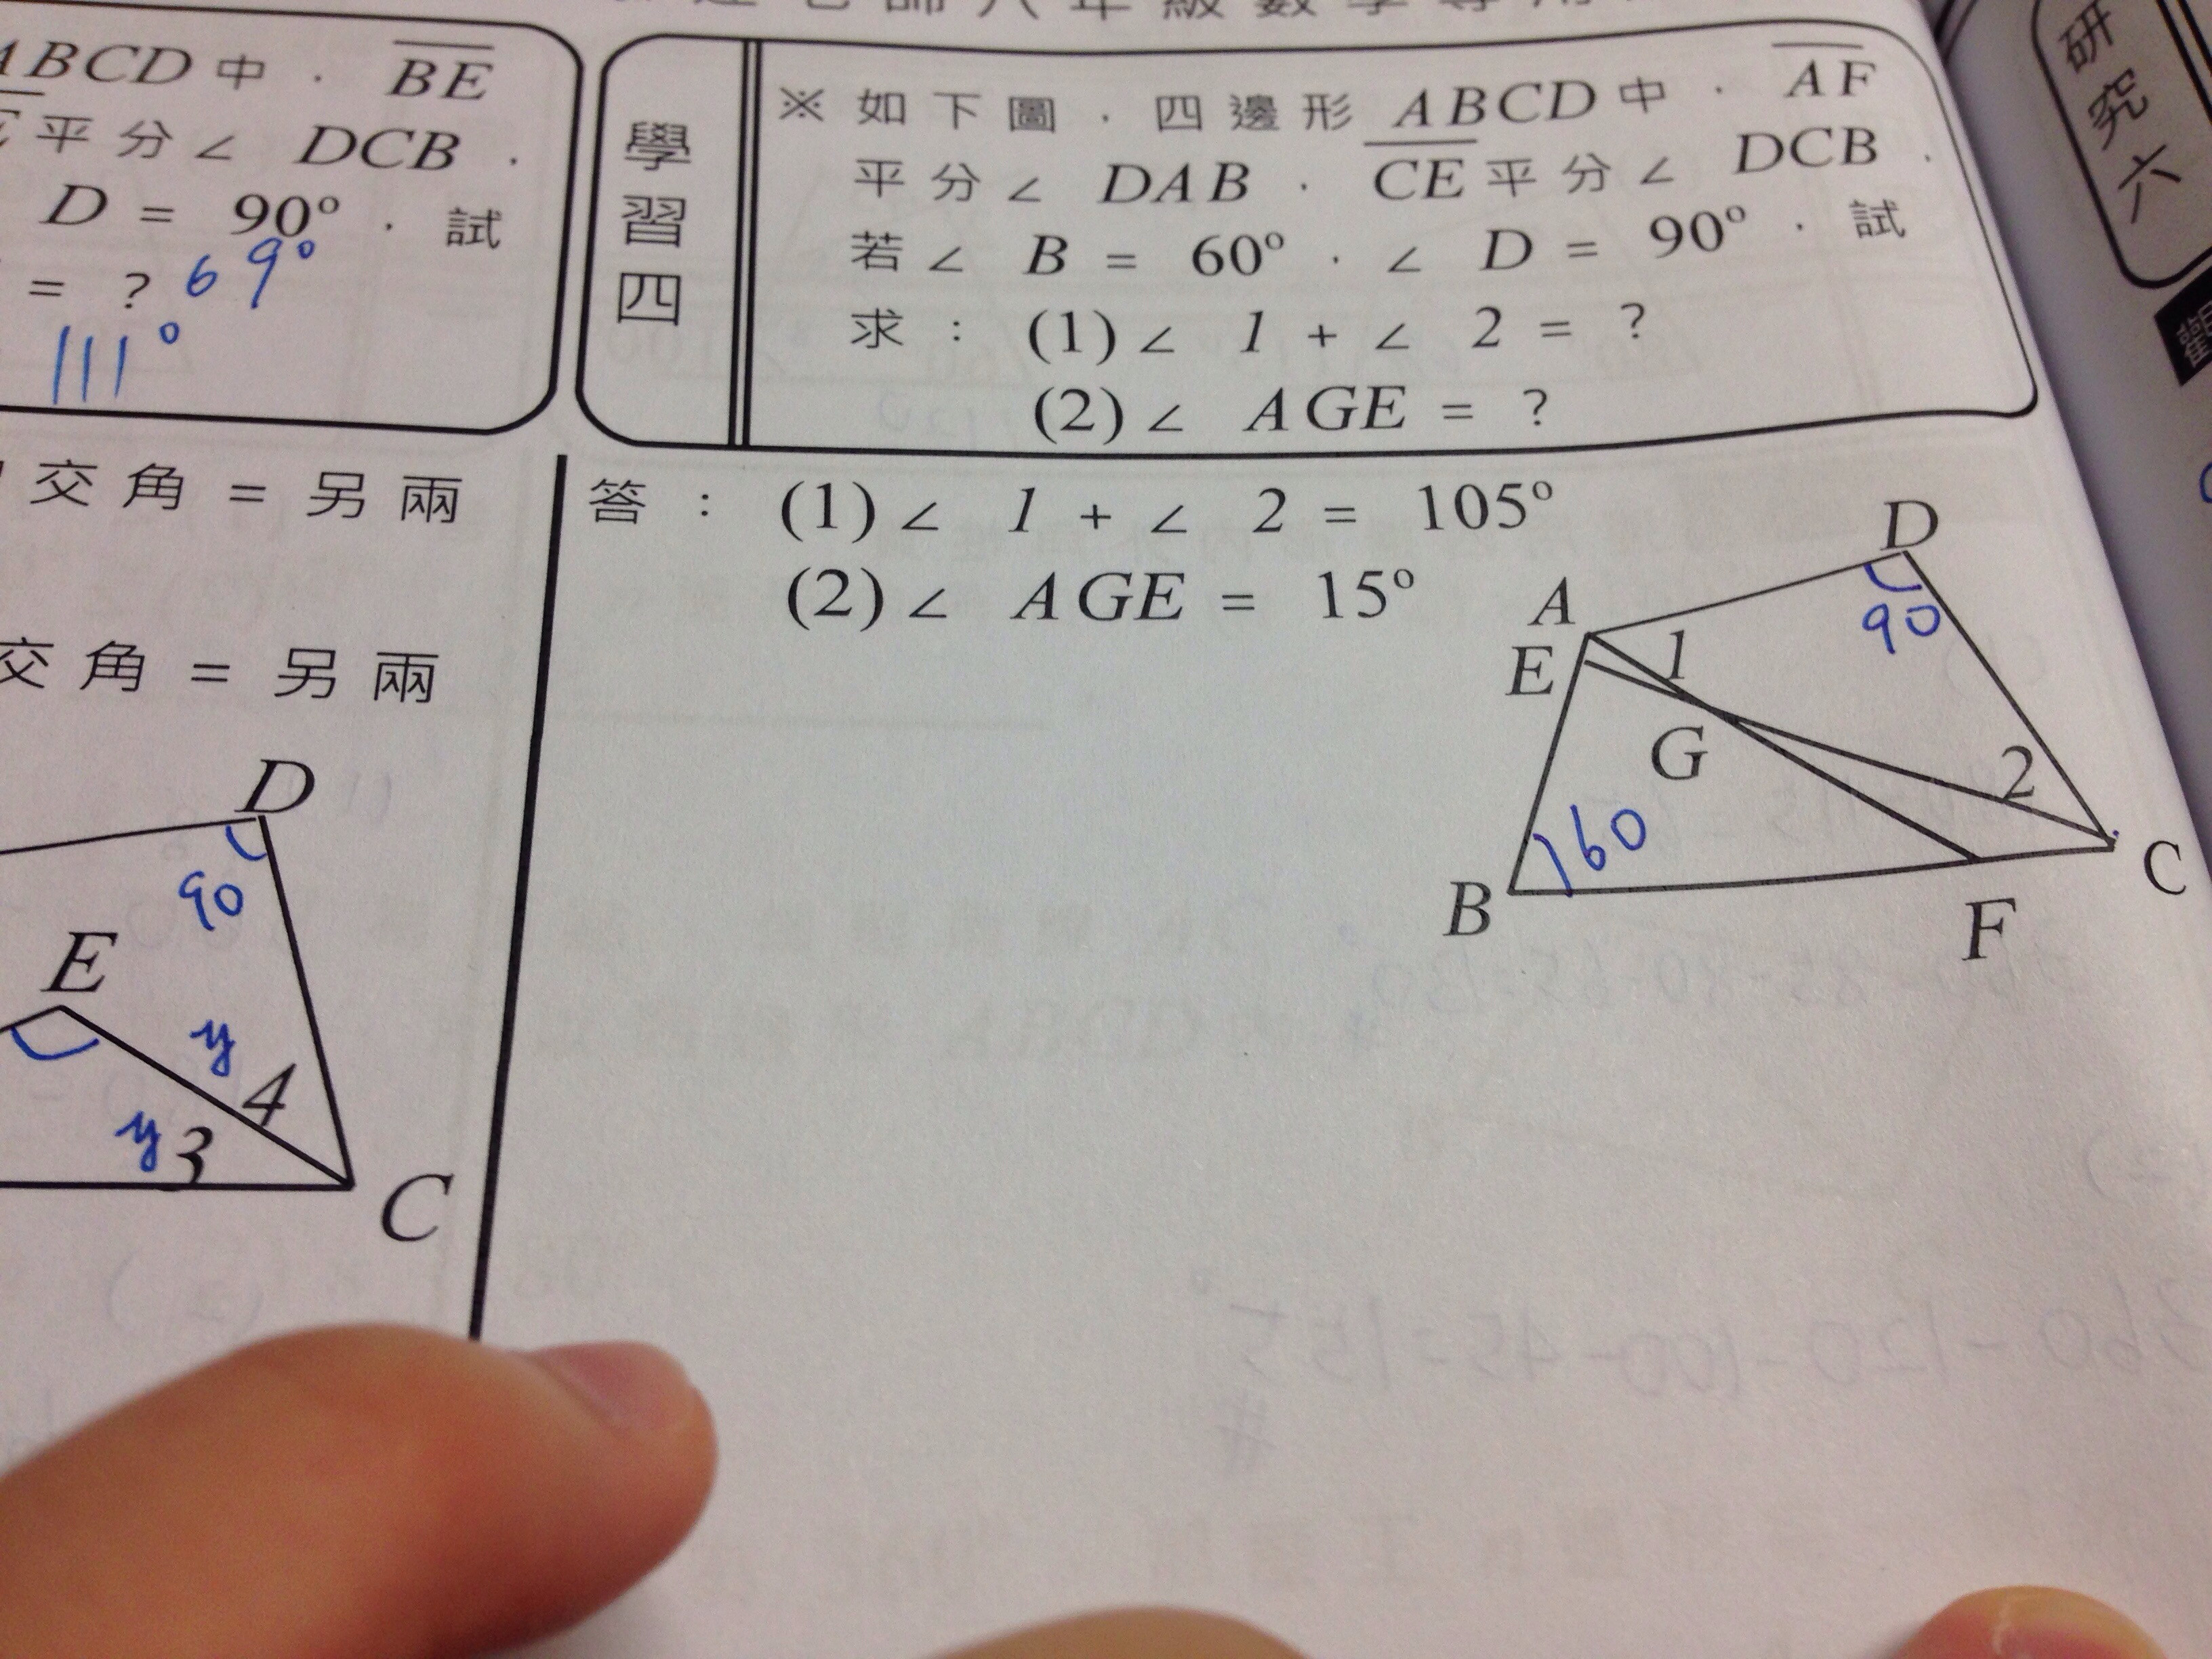 ABCD中. BE
平分∠ DCB .
D = 90° . 試
= ? 69°
111°
交角=另兩
交角=另兩
D
90
E
y
4
y 3
C
學習四
※如下圖.四邊形 ABCD中. AF
平分∠ DAB . CE平分∠ DCB .
若∠ B = 60° . ∠ D = 90° . 試
求: (1)∠ 1 + ∠ 2 = ?
(2)∠ AGE = ?
答: (1)∠ 1 + ∠ 2 = 105°
(2)∠ AGE = 15°
D
A
90
E 1
G
2
60
B
C
F
研究六